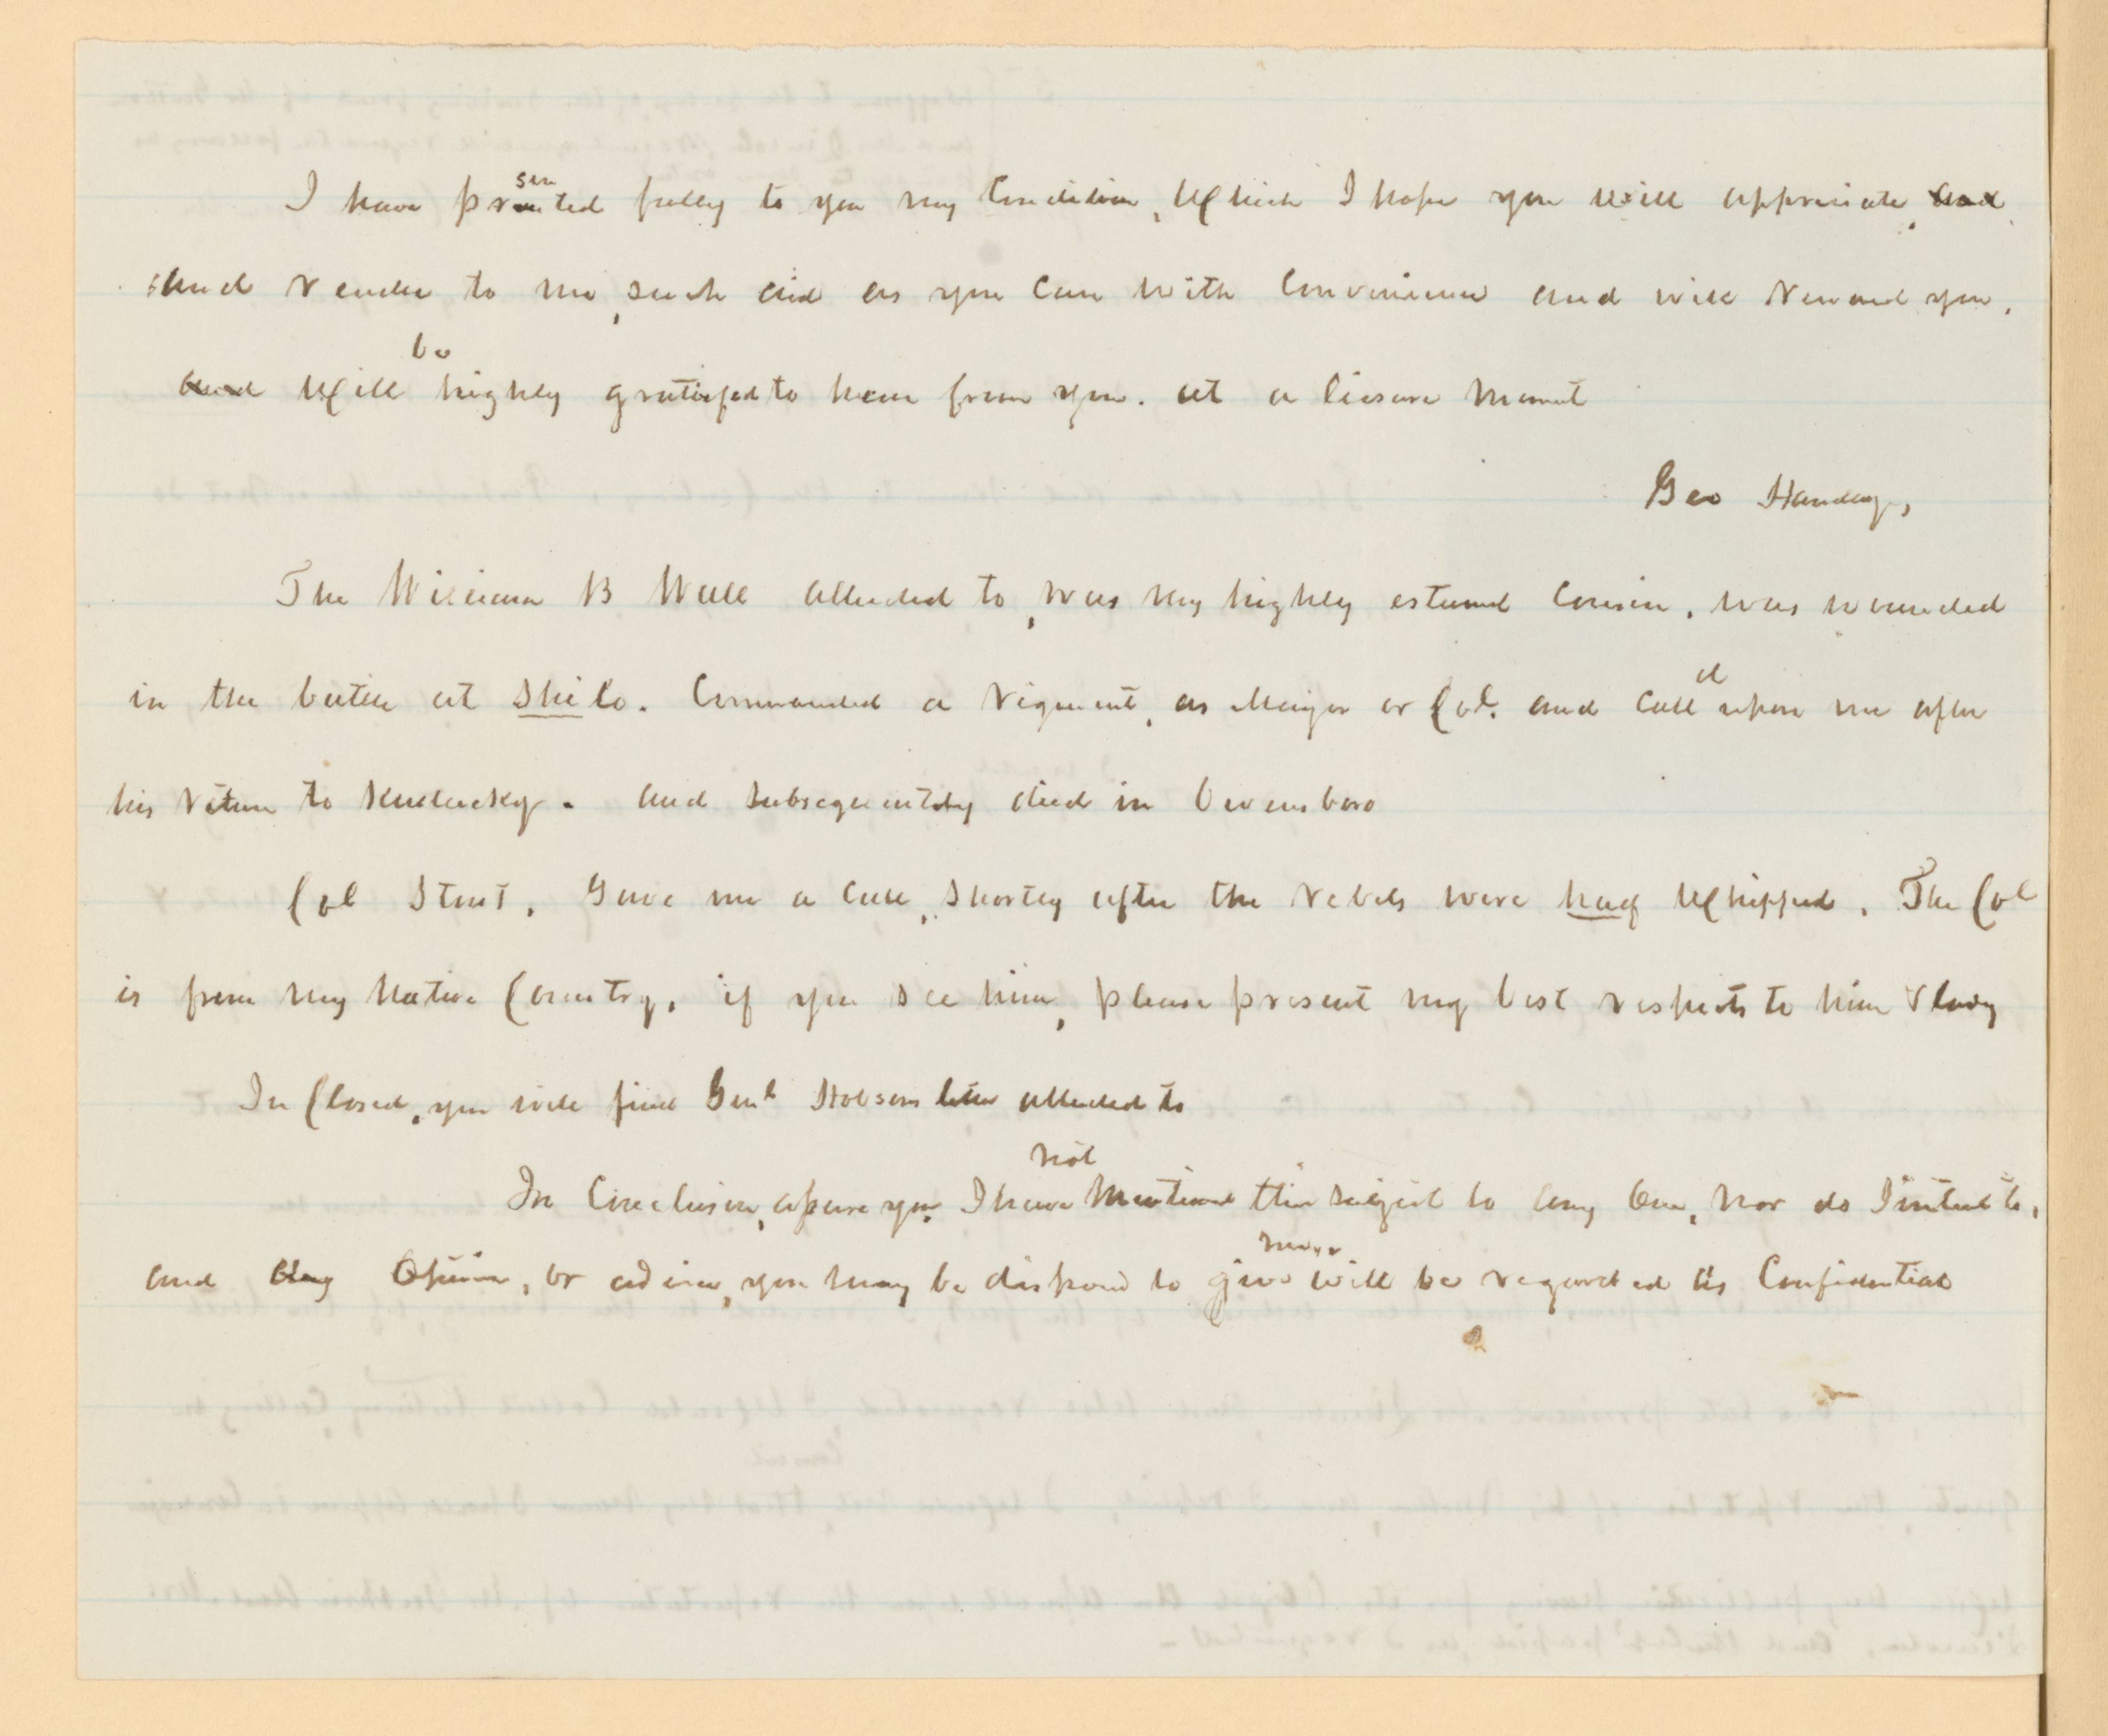 I have presented fully to you my Condition, Which I hope you will appreciate, and
and render to me, such aid as you can with Convenience and will reward you,
and Will be highly gratified to hear from you. at a liesure Moment
Geo Handey,
The William B Wall alluded to, was my highly esteemed Cousin, was wounded
in the battle at Shilo. Commanded a regiment, as Major or Col. and Calld upon me after
his return to Kentucky. and subsequently died in Owensboro
Col Stout, Gave me a Call, Shortly after the rebels were half Whipped. The Col
is from my Native Country, if you see him, please present my best respects to him & lady
In Closed, you will find Genl Hobsons letter alluded to
In Conclusion, assure you, I have not Mentioned this subject to any One, nor do I intend to,
and any Opinion, or advice, you may be disposed to give will be regarded as Confidential